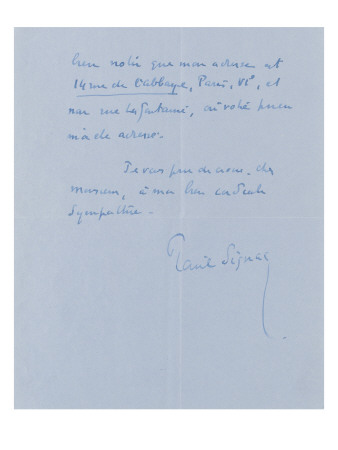 bien noter que mon adresse est
14 rue de l'abbaye, Paris, VIᵉ, et
non rue La fontaine, où votre pneu
m'a été adressé.
Je vous prie de croire, cher
monsieur, à ma bien cordiale
sympathie.
Paul Signac